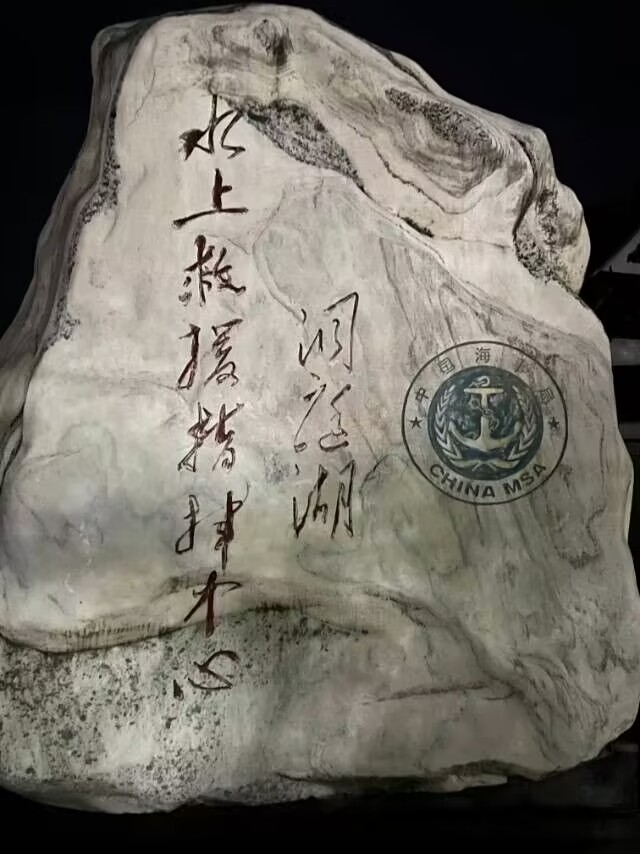 洞庭湖
水上救援指挥中心
中国海事局
CHINA MSA